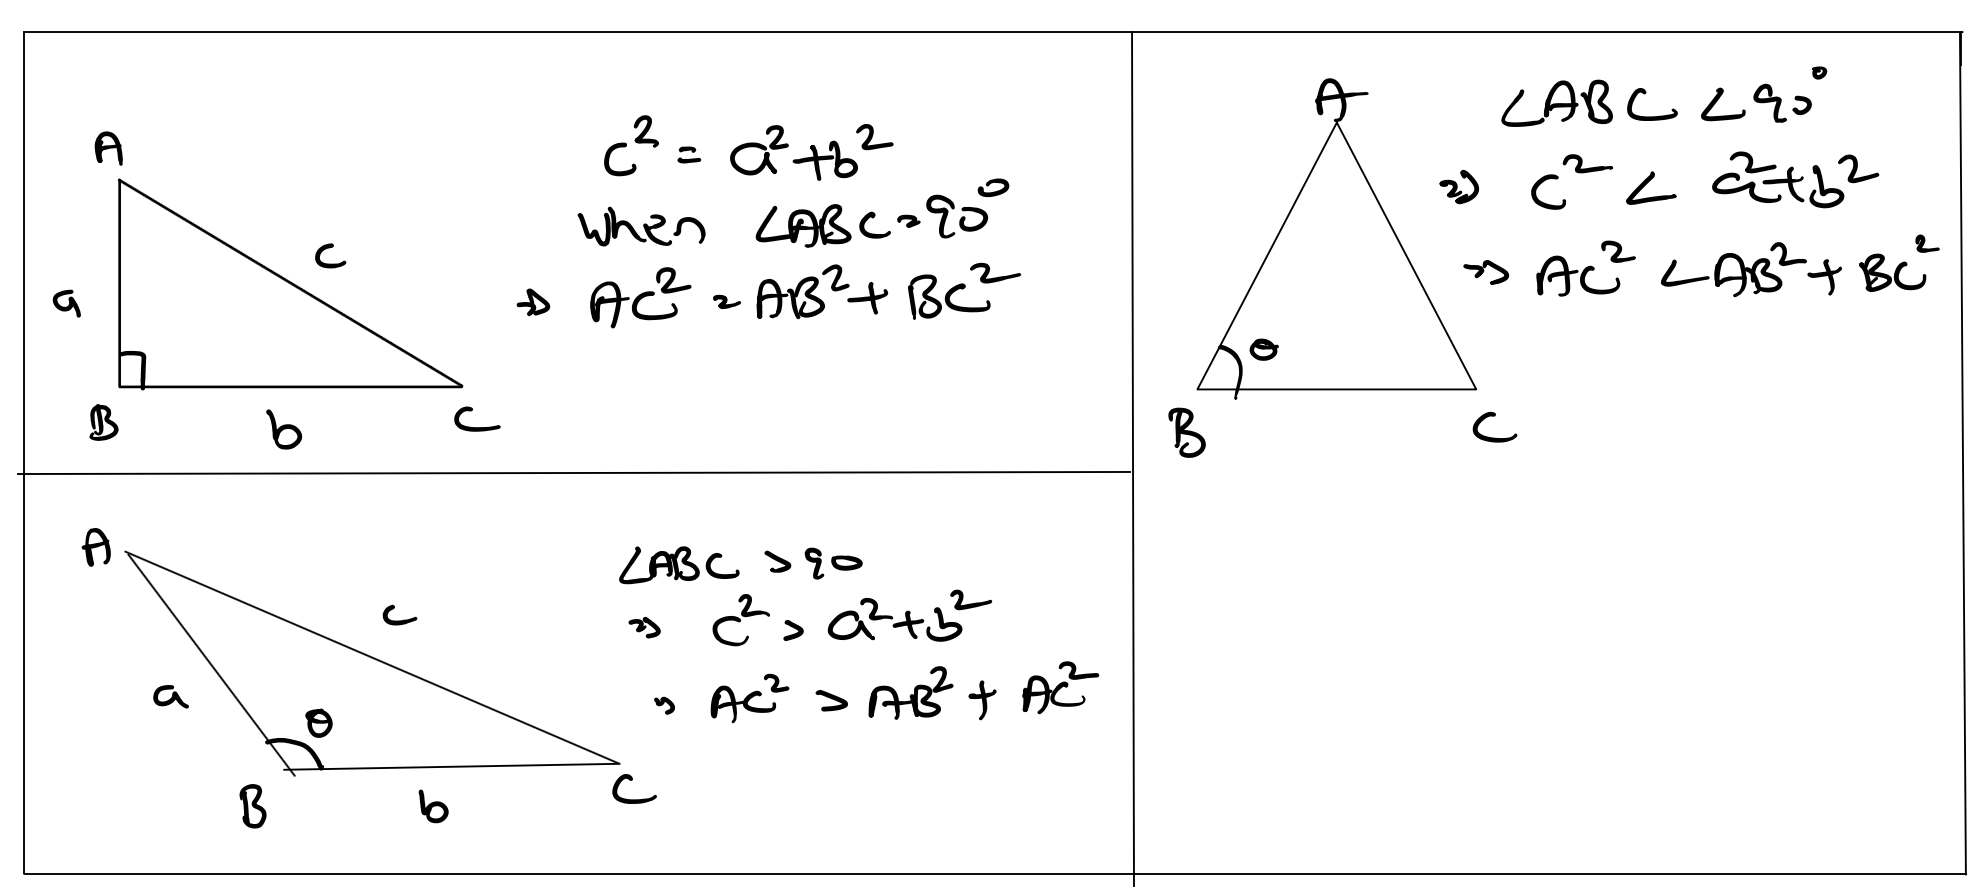 A
c
a
B
b
C
c² = a²+b²
when ∠ABC = 90°
⇒ AC² = AB² + BC²
A
c
a
θ
B
b
C
∠ABC > 90
⇒ c² > a²+b²
⇒ AC² > AB² + AC²
A
θ
B
C
∠ABC < 90°
⇒ c² < a²+b²
⇒ AC² < AB² + BC²